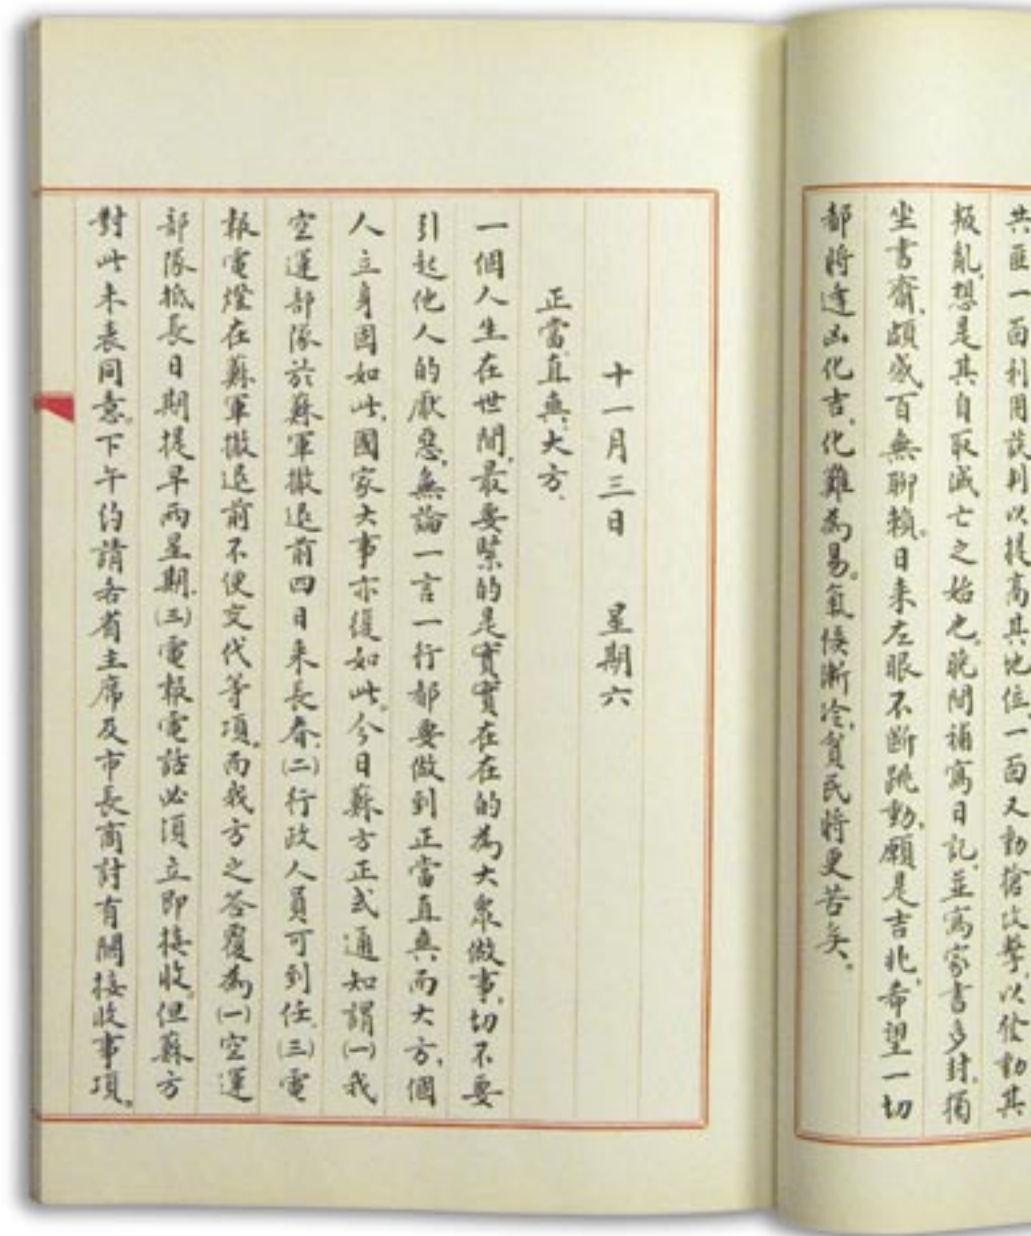 共匪一面利用談判以提高其地位一面又動搶攻擊以發動其
叛亂、想是其自取滅亡之始也。晚間補寫日記、並寫家書多封、獨
坐書齋、頗感百無聊賴。日來左眼不斷跳動、願是吉兆、希望一切
都將逢凶化吉、化難為易。氣候漸冷、貧民將更苦矣。
十一月三日　星期六
正當、直爽、大方、
一個人生在世間、最要緊的是實實在在的為大眾做事、切不要
引起他人的厭惡、無論一言一行都要做到正當直爽而大方、個
人立身固如此、國家大事亦復如此。今日蘇方正式通知謂(一)我
空運部隊於蘇軍撤退前四日來長春、(二)行政人員可到任、(三)電
報電燈在蘇軍撤退前不便交代等項。而我方之答覆為(一)空運
部隊抵長日期提早兩星期、(三)電報電話必須立即接收。但蘇方
對此未表同意。下午約請各省主席及市長商討有關接收事項。